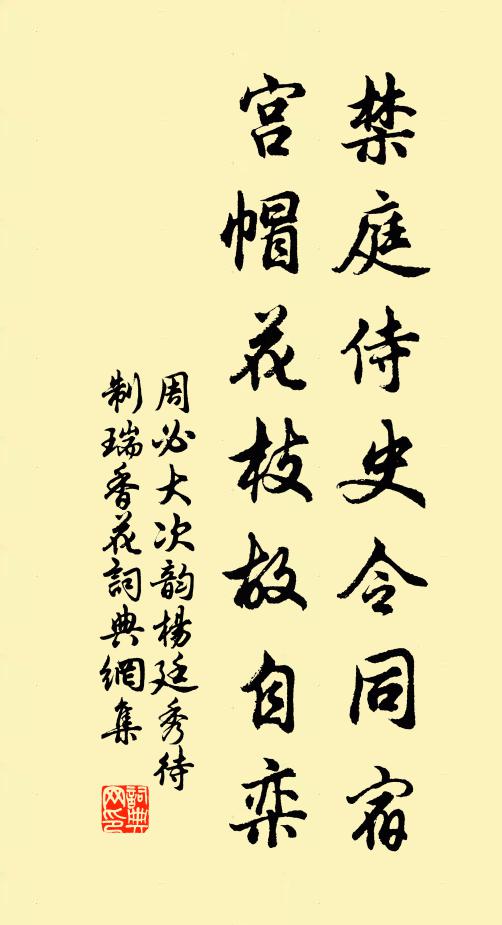 禁庭侍史令同宿
宫帽花枝故自奕
周必大次韵楊廷秀待
制瑞香花詞典網集
詞典网印